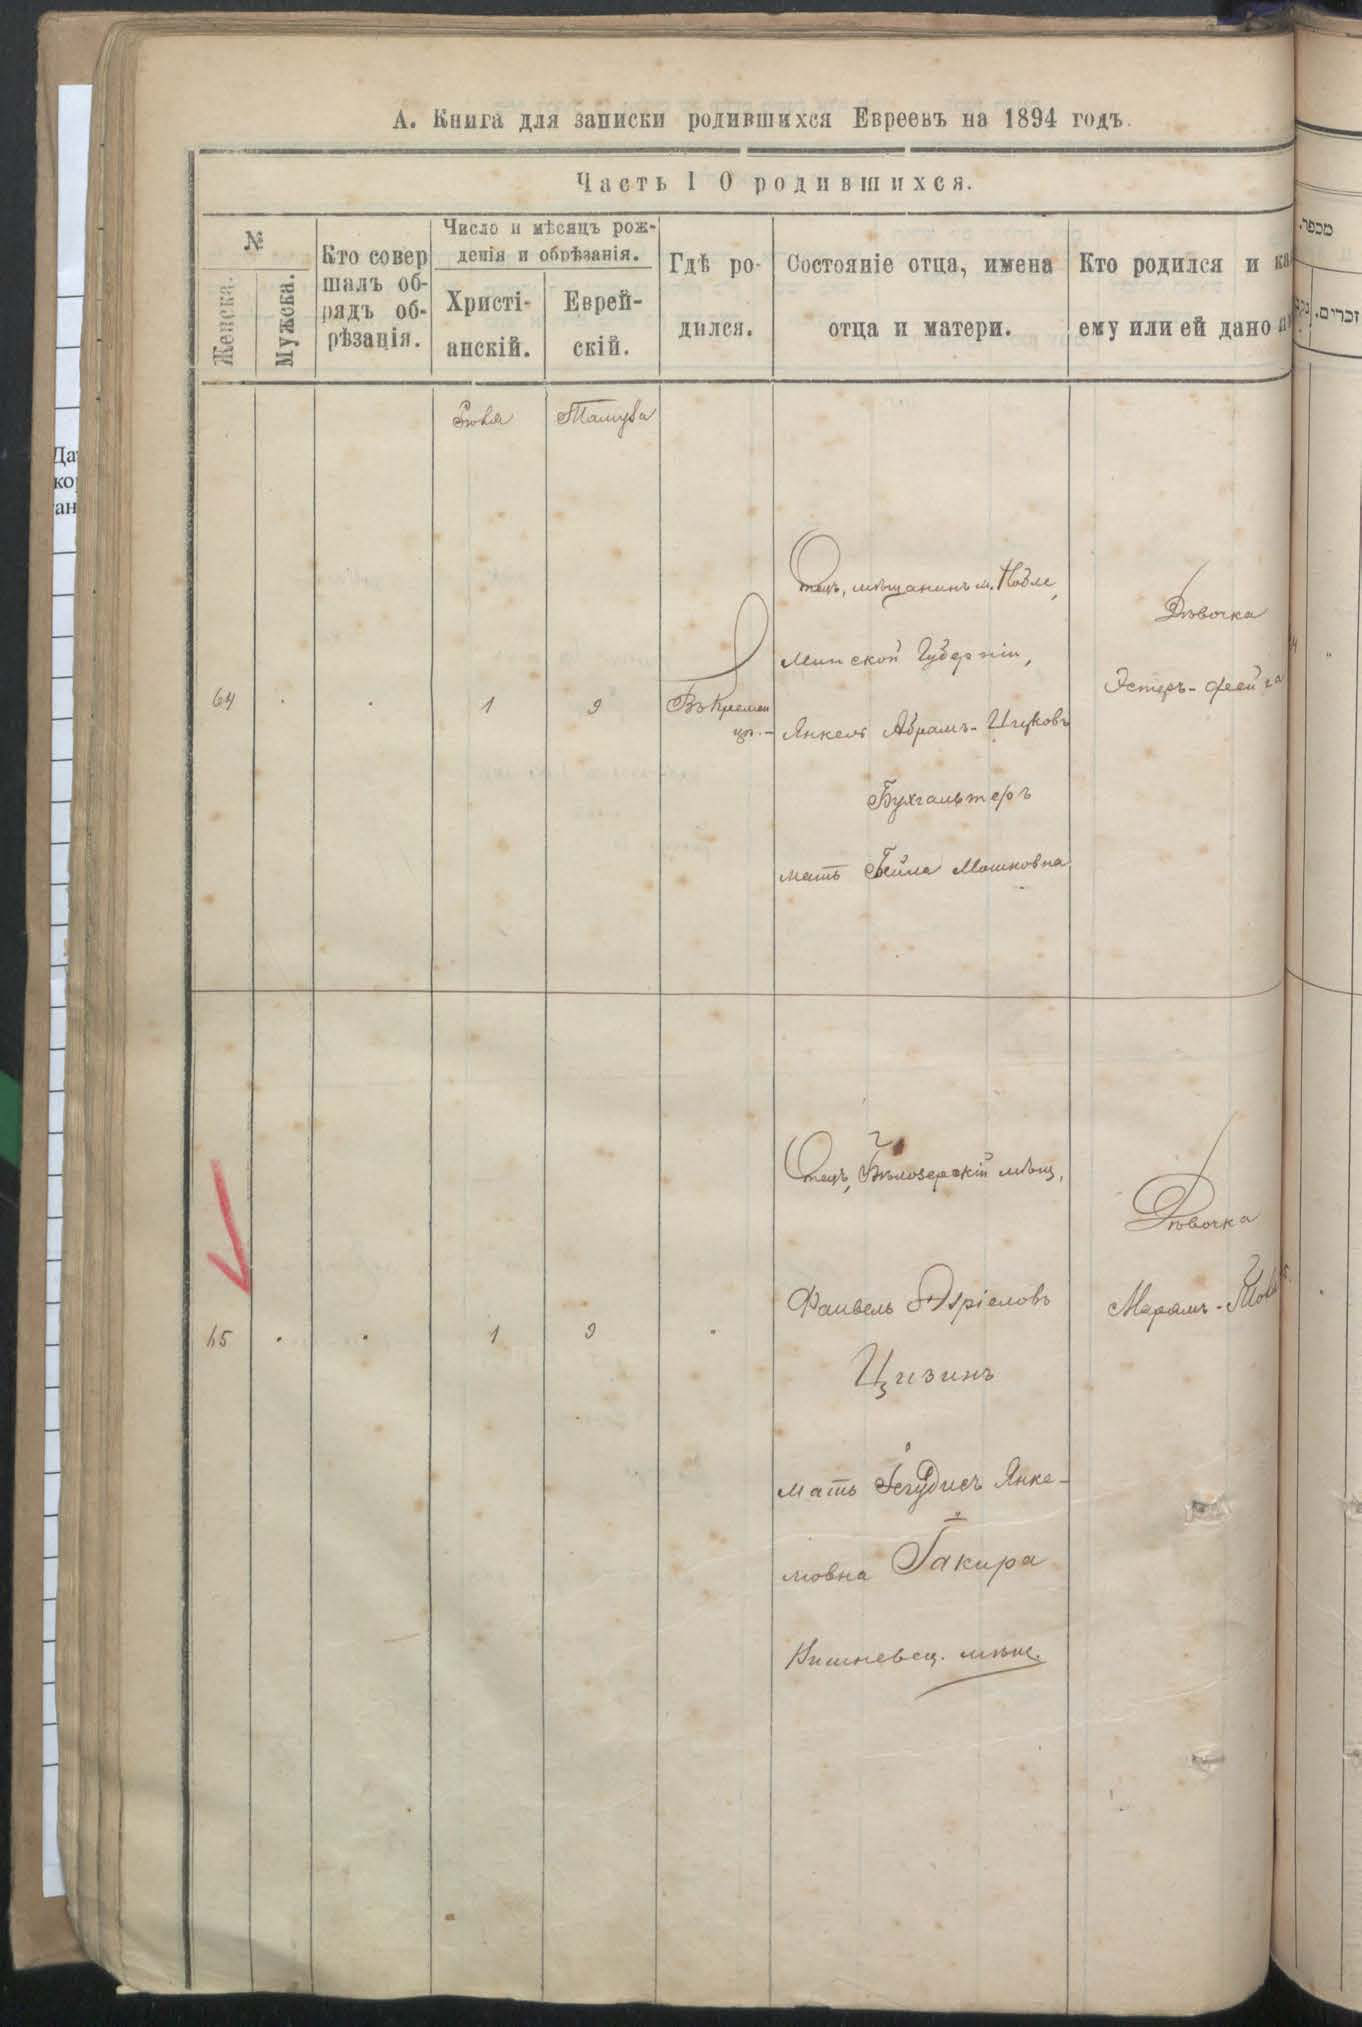 А. Книга для записки родившихся Евреевъ на 1894 годъ.
Часть I О родившихся.
№
Женска.
Мужска.
Кто совер
шалъ об-
рядъ об-
рѣзанія.
Число и мѣсяцъ рож-
денія и обрѣзанія.
Христі-
анскій.
Еврей-
скій.
Гдѣ ро-
дился.
Состояніе отца, имена
отца и матери.
Кто родился и ка
ему или ей дано
מספר.
זכרים.
Да
ко
ан
Іюня
Тамуза
64
1
9
Въ Кремен
цѣ.
Отецъ, мѣщанинъ м.
Минской Губерніи,
Янкель Абрамъ-Ицковъ
Бухгальтеръ
мать Бейла Мошковна
Дѣвочка
Эстеръ-Фейга
65
1
9
Отецъ, Бѣлозерскій мѣщ.
Файвель Азріеловъ
Цизинъ
мать Іегудисъ Янке-
мовна Гакира
Вишневец. мѣщ.
Дѣвочка
Мерямъ-